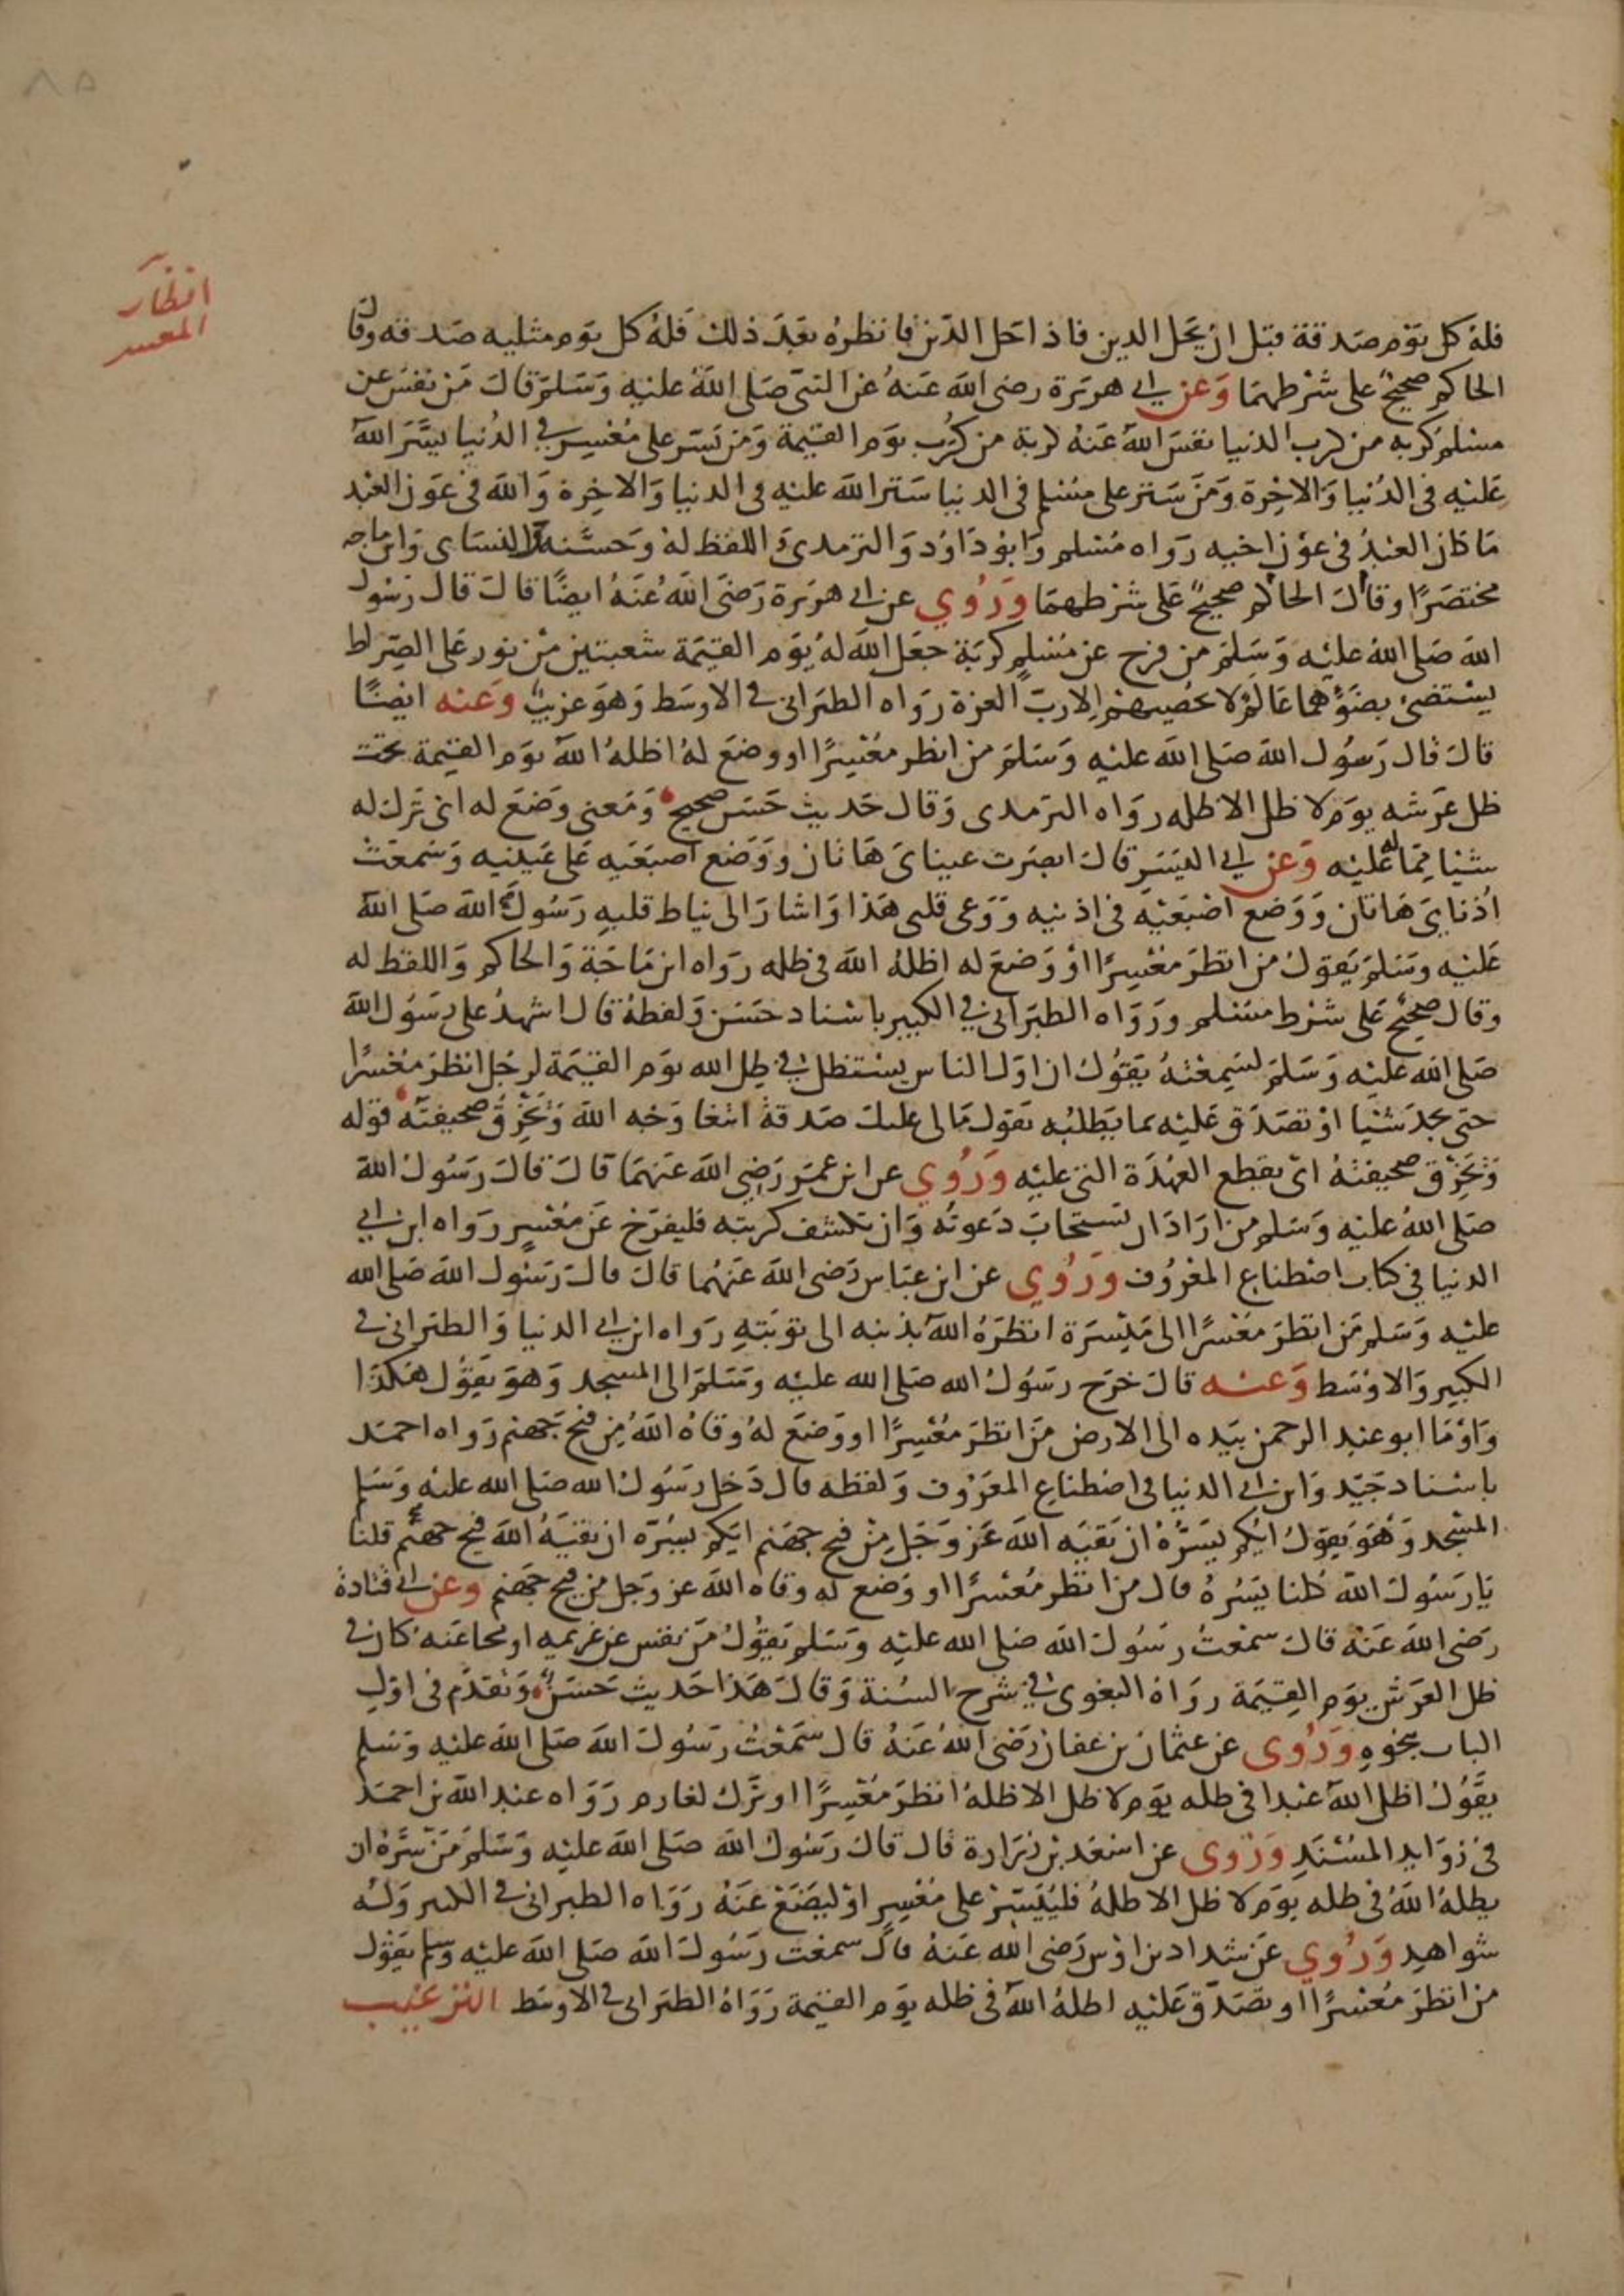 ٨٥
انظار
المعسر
فله كل يوم صدقة قبل ان يحل الدين فاذا حل الدين فانظره بعد ذلك فله كل يوم مثليه صدقه وقال
الحاكم صحيح على شرطهما وعن ابي هريرة رضى الله عنه عن النبى صلى الله عليه وسلم قال من نفس عن
مسلم كربه من كرب الدنيا نفس الله عنه كربة من كرب يوم القيمة ومن يسر على معسر في الدنيا يسر الله
عليه فى الدنيا والاخرة ومن ستر على مسلم فى الدنيا ستر الله عليه فى الدنيا والاخرة والله فى عون العبد
ما كان العبد فى عون اخيه رواه مسلم وابو داود والترمدى واللفظ له وحسنه والنساى وابن ماجه
مختصرًا وقال الحاكم صحيح على شرطهما وروي عن ابى هريرة رضى الله عنه ايضًا قال قال رسول
الله صلى الله عليه وسلم من فرج عن مسلم كربة جعل الله له يوم القيمة شعبتين من نور على الصراط
يستضئ بضؤهما عالم لا يحصيهم الا رب العزة رواه الطبرانى فى الاوسط وهو غريب وعنه ايضًا
قال قال رسول الله صلى الله عليه وسلم من انظر معسرًا او وضع له اظله الله يوم القيمة تحت
ظل عرشه يوم لا ظل الا ظله رواه الترمدى وقال حديث حسن صحيح ومعنى وضع له اى ترك له
شيئا مما له عليه وعن ابي اليسر قال ابصرت عيناى هاتان ووضع اصبعيه على عينيه وسمعت
اذناي هاتان ووضع اصبعيه فى اذنيه ووعى قلبى هذا واشار الى نياط قلبه رسول الله صلى الله
عليه وسلم يقول من انظر معسرًا او وضع له اظله الله فى ظله رواه ابن ماجة والحاكم واللفظ له
وقال صحيح على شرط مسلم ورواه الطبرانى في الكبير باسناد حسن ولفظه قال اشهد على رسول الله
صلى الله عليه وسلم لسمعته يقول ان اول الناس يستظل في ظل الله يوم القيمة لرجل انظر معسرًا
حتى يجد شئيا او تصدق عليه بما يطلبه يقول مالى عليك صدقة ابتغا وجه الله وتخرق صحيفته قوله
وتخرق صحيفته اى يقطع العهدة التى عليه وروي عن ابن عمر رضى الله عنهما قال قال رسول الله
صلى الله عليه وسلم من اراد ان تستجاب دعوته وان تكشف كربته فليفرج عن معسر رواه ابن ابي
الدنيا في كتاب اصطناع المعروف وروي عن ابن عباس رضى الله عنهما قال قال رسول الله صلى الله
عليه وسلم من انظر معسرًا الى ميسرة انظره الله بذنبه الى توبته رواه ابن ابي الدنيا والطبرانى فى
الكبير والاوسط وعنه قال خرج رسول الله صلى الله عليه وسلم الى المسجد وهو يقول هكذا
واوما ابو عبد الرحمن بيده الى الارض من انظر معسرًا او وضع له وقاه الله من فيح جهنم رواه احمد
باسناد جيد وابن ابي الدنيا فى اصطناع المعروف ولفظه قال دخل رسول الله صلى الله عليه وسلم
المسجد وهو يقول ايكم يسره ان يقيه الله عز وجل من فيح جهنم ايكم يسره ان يقيه الله فيح جهنم قلنا
يا رسول الله كلنا يسره قال من انظر معسرًا او وضع له وقاه الله عز وجل من فيح جهنم وعن ابى قتادة
رضى الله عنه قال سمعت رسول الله صلى الله عليه وسلم يقول من نفس عن غريمه او محا عنه كان فى
ظل العرش يوم القيمة رواه البغوى في شرح السنة وقال هذا حديث حسن وتقدم فى اول
الباب بنحوه وروى عن عثمان بن عفان رضى الله عنه قال سمعت رسول الله صلى الله عليه وسلم
يقول اظل الله عبدا فى ظله يوم لا ظل الا ظله انظر معسرًا او ترك لغارم رواه عبد الله بن احمد
فى زوايد المسند وروى عن اسعد بن زرارة قال قال رسول الله صلى الله عليه وسلم من سره ان
يظله الله فى ظله يوم لا ظل الا ظله فلييسر على معسر او ليضع عنه رواه الطبرانى فى الكبير وله
شواهد وروي عن شداد بن اوس رضى الله عنه قال سمعت رسول الله صلى الله عليه وسلم يقول
من انظر معسرًا او تصدق عليه اظله الله فى ظله يوم القيمة رواه الطبرانى فى الاوسط الترغيب